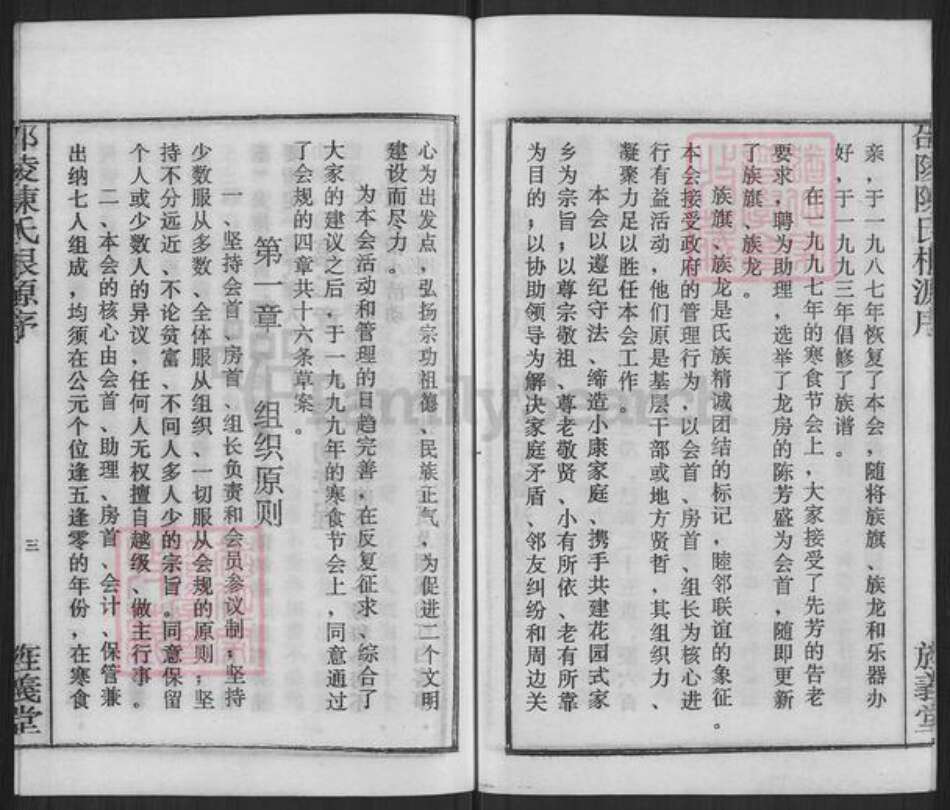 亲，于一九八七年恢复了本会，随将族旗、族龙和乐器办
好，于一九九三年倡修了族谱。
在一九九七年的寒食节会上，大家接受了先芳的告老
要求，聘为助理，选举了龙房的陈芳盛为会首，随即更新
了族旗、族龙。
族旗、族龙是氏族精诚团结的标记，睦邻联谊的象征。
本会接受政府的管理行为，以会首、房首、组长为核心进
行有益活动，他们原是基层干部或地方贤哲，其组织力、
凝聚力足以胜任本会工作。
本会以遵纪守法、缔造小康家庭、携手共建花园式家
乡为宗旨；以尊宗敬祖、尊老敬贤、小有所依、老有所靠
为目的；以协助领导为解决家庭矛盾、邻友纠纷和周边关
心为出发点，弘扬宗功祖德、民族正气，为促进二个文明
建设而尽力。
为本会活动和管理的日趋完善，在反复征求、综合了
大家的建议之后，于一九九九年的寒食节会上，同意通过
了会规的四章共十六条草案。
第一章 组织原则
一、坚持会首、房首、组长负责和会员参议制；坚持
少数服从多数、全体服从组织、一切服从会规的原则；坚
持不分远近、不论贫富、不问人多人少的宗旨，同意保留
个人或少数人的异议，任何人无权擅自越级、做主行事。
二、本会的核心由会首、助理、房首、会计、保管兼
出纳七人组成，均须在公元个位逢五逢零的年份，在寒食
三